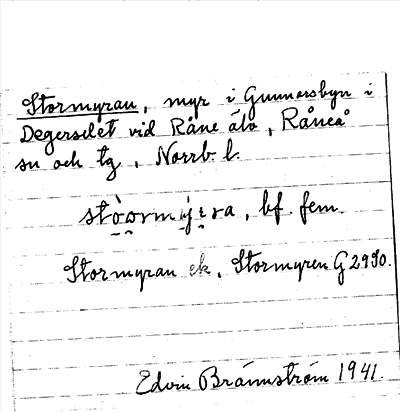 Stormyran, myr i Gunnarsbyn i
Degerselet vid Råne älv, Råneå
sn och tg, Norrb. l.
stò̰o̰rmý̰ɛ̰ra, bf. fem.
Stormyran ek., Stormyren G 2990.
Edvin Brännström 1941.